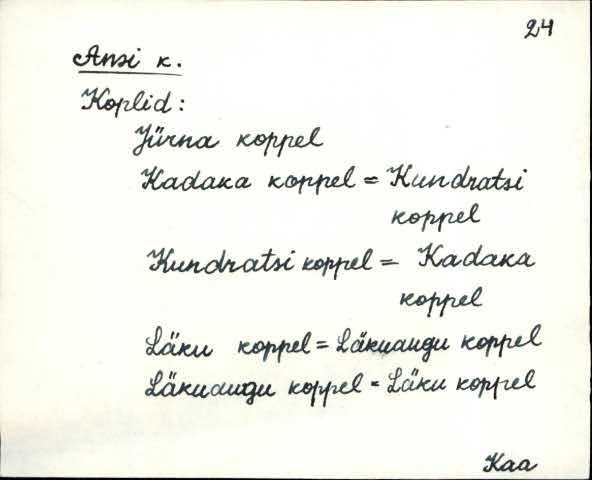 24
Ansi k.
Koplid:
Jürna koppel
Kadaka koppel = Kundratsi
koppel
Kundratsi koppel = Kadaka
koppel
Läku koppel = Läkuaugu koppel
Läkuaugu koppel = Läku koppel
Kaa